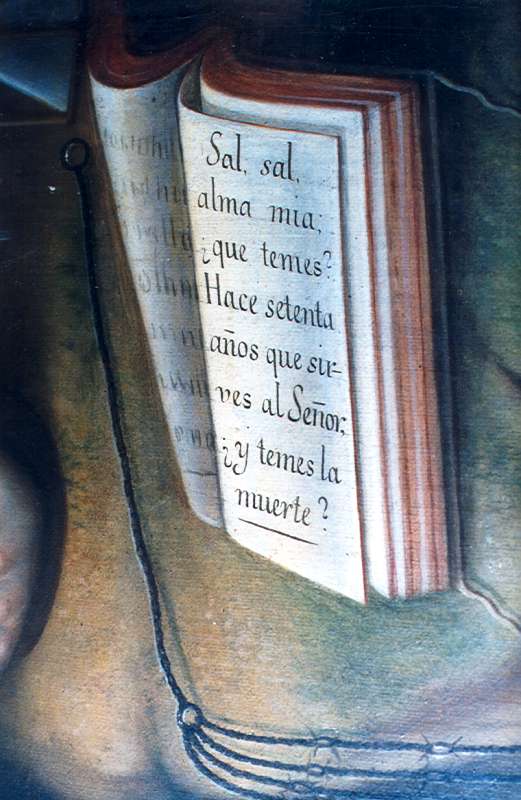 Sal, sal,
alma mia;
¿que temes?
Hace setenta
años que sir-
ves al Señor;
¿y temes la
muerte?